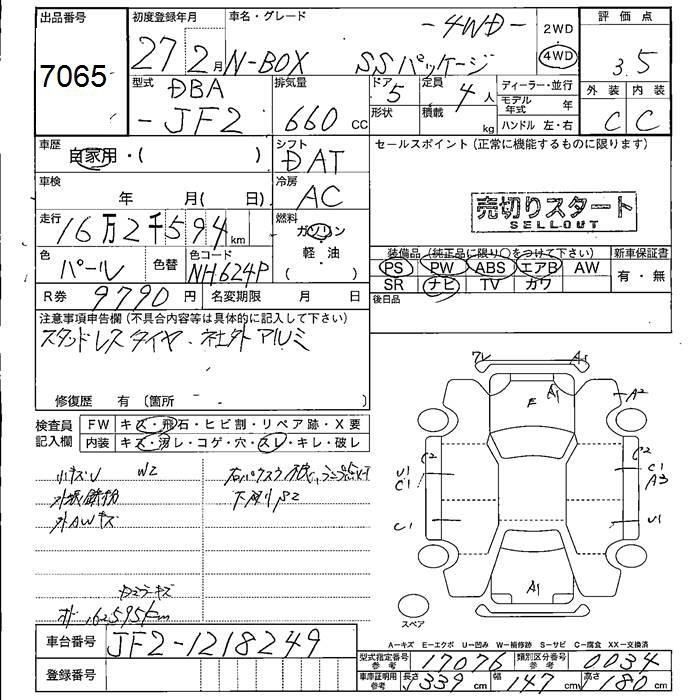 出品番号
7065
初度登録年月
27年2月
車名・グレード
N-BOX SSパッケージ
-4WD-
2WD
4WD
評価点
3.5
外装 内装
C C
型式
DBA
-JF2
排気量
660 cc
ドア 5
形状
定員 4人
積載 kg
ディーラー・並行
モデル年式 年
ハンドル 左・右
車歴
自家用・( )
シフト
DAT
セールスポイント(正常に機能するものに限ります)
車検
年 月( 日)
冷房
AC
売切りスタート
SELLOUT
走行
16万2千594km
燃料
ガソリン
軽・油
( )
色
パール
色替
色コード
NH624P
装備品(純正品に限り○をつけて下さい)
PS PW ABS エアB AW
SR ナビ TV カワ
新車保証書
有・無
R券 9790円
名変期限 月 日
後日品
注意事項申告欄(不具合内容等は具体的に記入して下さい)
スタッドレスタイヤ・社外アルミ
修復歴 有(箇所
検査員
記入欄
FW キズ・飛石・ヒビ割・リペア跡・X要
内装 キズ・汚レ・コゲ・穴・スレ・キレ・破レ
小キズU W2
下廻りS2
外AWキズ
162595km
フレ A1
F A1
A2
C2 C2
U1 C1
C1 A3
C1 U1
A1
スペア
A-キズ E-エクボ U-凹み W-補修跡 S-サビ C-腐食 XX-交換済
車台番号 JF2-1218249
登録番号
型式指定番号 参考 17076
類別区分番号 参考 0034
車庫証明用 参考 長さ 339cm 幅 147cm 高さ 180cm